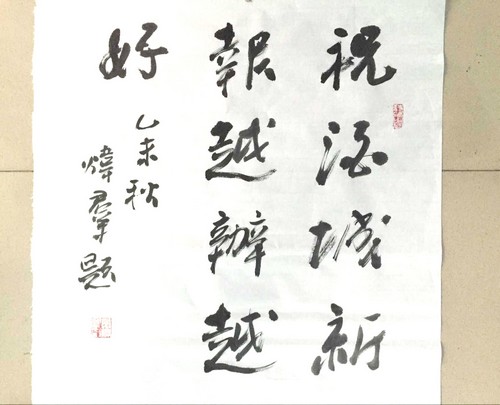 祝酒城新
報越辦越
好
乙未秋
煒羣題